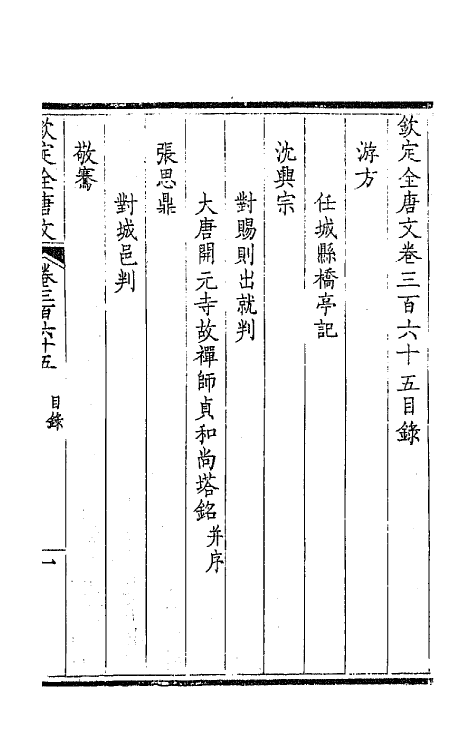 欽定全唐文卷三百六十五目錄
游方
任城縣橋亭記
沈興宗
對賜則出就判
大唐開元寺故禪師貞和尚塔銘并序
張思鼎
對城邑判
敬騫
欽定全唐文 卷三百六十五 目錄 一